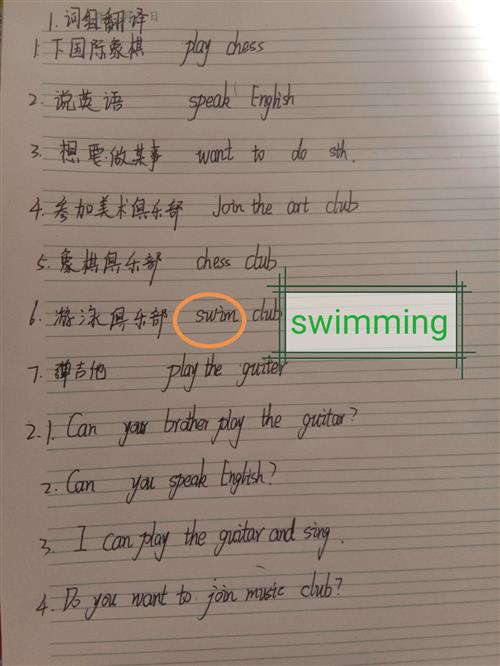 1.词组翻译
1.下国际象棋 play chess
2.说英语 speak English
3.想要做某事 want to do sth.
4.参加美术俱乐部 Join the art club
5.象棋俱乐部 chess club
6.游泳俱乐部 swim club
swimming
7.弹吉他 play the guiter
2.1. Can your brother play the guitar?
2. Can you speak English?
3. I can play the guitar and sing.
4. Do you want to join music club?